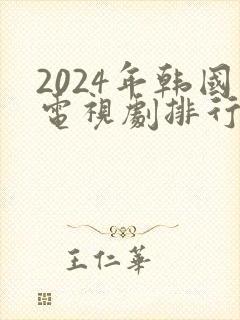 2024年韩國
電視劇排行
王仁華